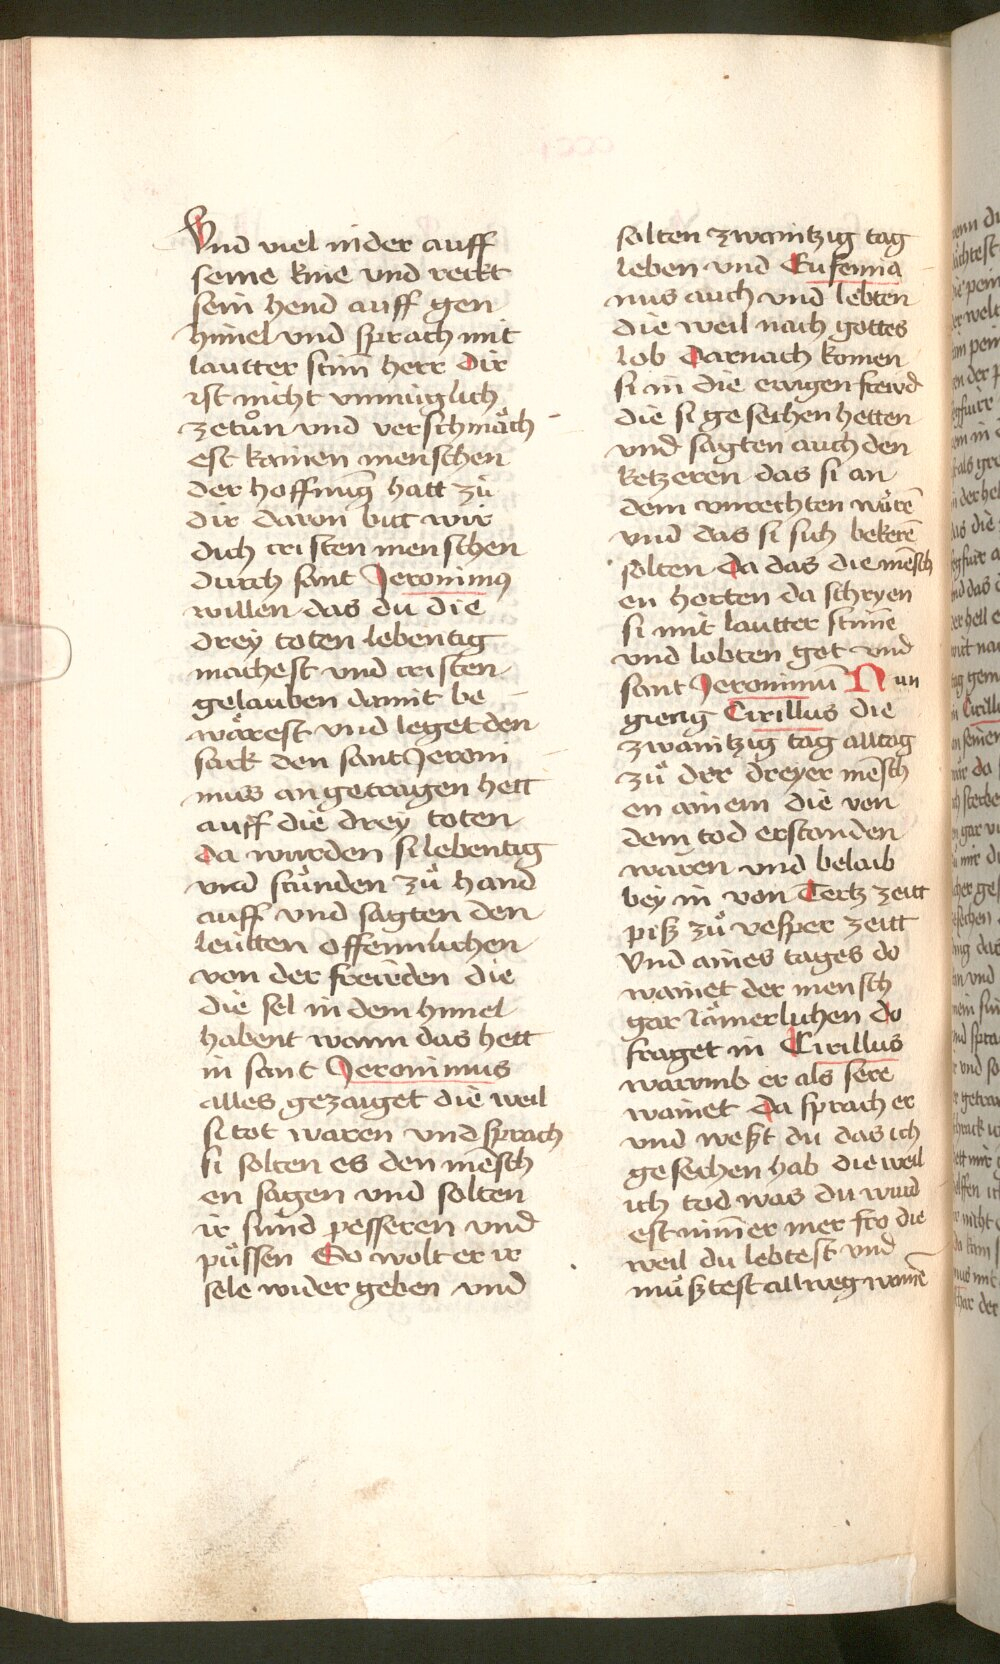 Vnd viel nider auff
seine knie vnd reckt
sein hend auff gen
himel vnd sprach mit
lautter stim̄ herr dir
ist nicht vnmüglich
zetůn vnd verschmäch
est kainen menschen
der hoffnūg hatt zů
dir daron bitt wir
dich cristen menschen
durch sant Jeronimus
willen das du die
drey toten lebentig
machest vnd cristen
gelauben damit be
wärest vnd leget den
sack den sant Jeroni
mus angetragen hett
auff die drey toten
da wurden si lebentig
vnd stůnden zů hand
auff vnd sagten den
leütten offennlichen
von der freẅden die
die sel in dem himel
habent wann das hett
in sant Jeronimus
alles gezaiget die weil
si tot waren vnd sprach
si solten es den mēsch
en sagen vnd solten
ir sünd pesseren vnd
püssen So wolt er ir
sele wider geben vnd
solten zwaintzig tag
leben vnd Eusennia
nus auch vnd lebten
die weil nach gottes
lob Darnach komen
si in die ewigen frewd
die si gesechen hetten
vnd sagten auch den
ketzeren das si an
dem vnrechten wärē
vnd das si sich bekerē
solten Da das die mēsch
en horten da schryen
si mit lautter stim̄e
vnd lobten got vnd
sant Jeronimū Nun
gieng Cirillus die
zwaintzig tag alltag
zů der dreyer mēsch
en ainem die von
dem tod erstanden
waren vnd belaib
bey in von Tertz zeitt
piß zů vesper zeitt
Vnd aines tages do
wainet der mensch
gar iämerlichen do
fraget in Cirillus
warumb er als sere
wainet Da sprach er
vnd weßt du das ich
gesechen hab die weil
ich tod was du wurd
est nim̄er mer fro die
weil du lebtest vnd
můßtest allweg wainē